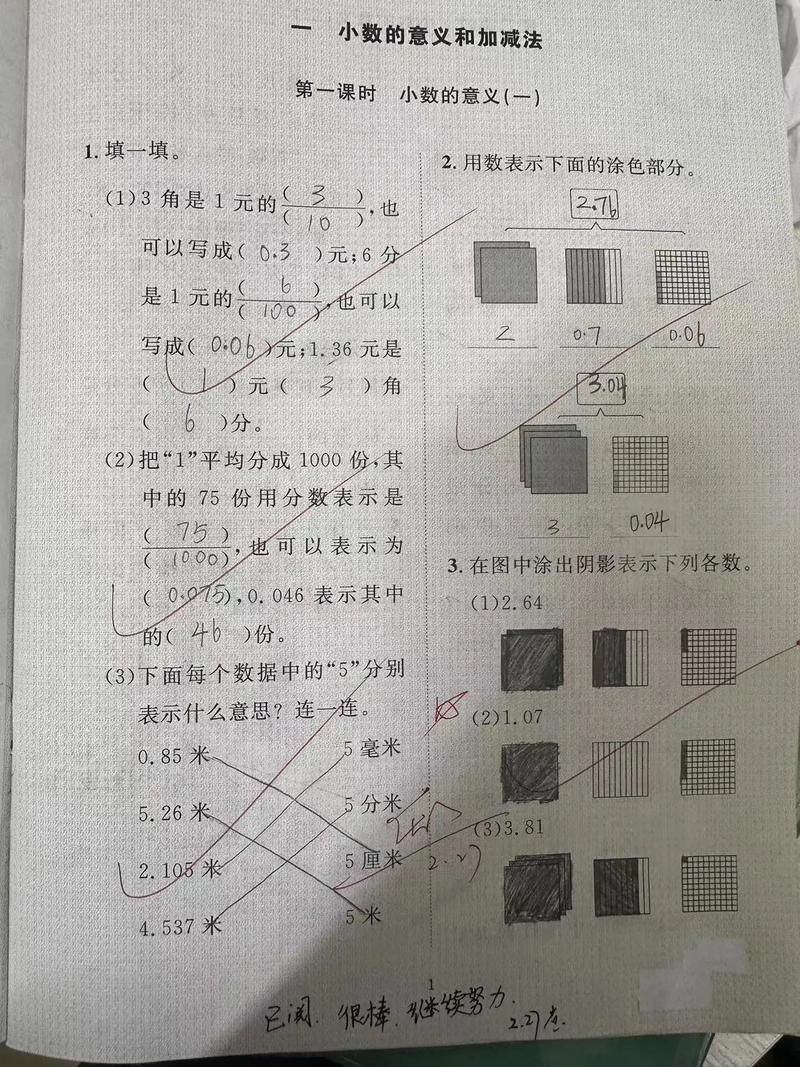 一 小数的意义和加减法
第一课时 小数的意义(一)
1.填一填。
(1)3角是1元的(3)/(10),也
可以写成(0.3)元;6分
是1元的(6)/(100),也可以
写成(0.06)元;1.36元是
(1)元(3)角
(6)分。
(2)把“1”平均分成1000份,其
中的75份用分数表示是
(75)/(1000),也可以表示为
(0.075),0.046表示其中
的(46)份。
(3)下面每个数据中的“5”分别
表示什么意思?连一连。
0.85米 5毫米
5.26米 5分米
2.105米 5厘米
4.537米 5米
2.用数表示下面的涂色部分。
2.76
2 0.7 0.06
3.04
3 0.04
3.在图中涂出阴影表示下列各数。
(1)2.64
(2)1.07
(3)3.81
2.27
1
已阅.很棒.继续努力.
2.27